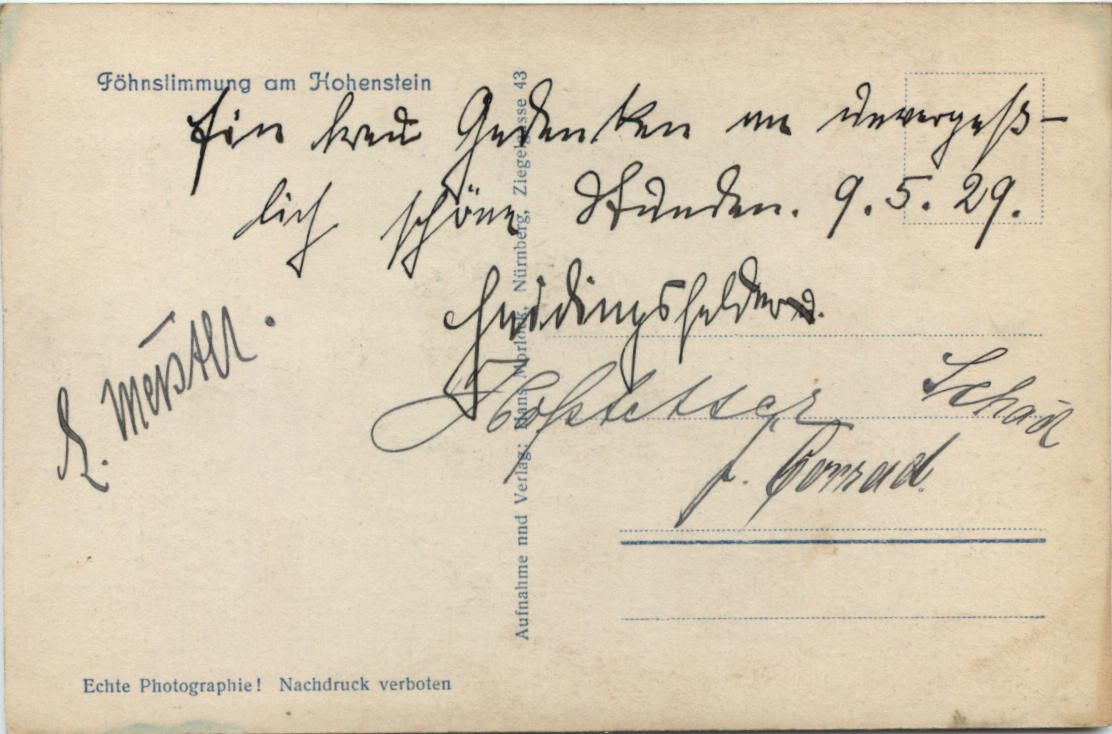 Föhnstimmung am Hohenstein
Ein treu Gedenken an unvergeß-
lich schöne Stunden. 9.5.29.
Heidingsfelder
Hofstetter
Schad
F. Conrad.
Aufnahme nnd Verlag: Hans Morlock, Nürnberg, Ziegelgasse 43
Echte Photographie! Nachdruck verboten